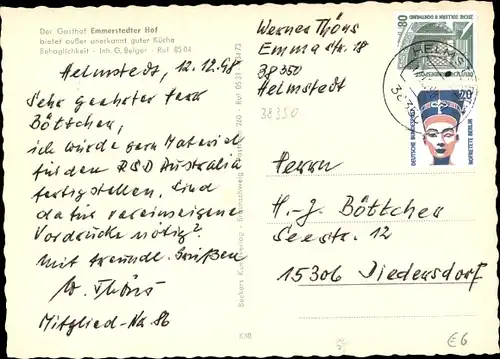 Der Gasthof Emmerstedter Hof
bietet außer anerkannt guter Küche
Behaglichkeit - Inh. G. Belger - Ruf 8504
Helmstedt, 12.12.98
Sehr geehrter Herr
Böttcher,
ich würde gern Material
für den RSD Australia
fertigstellen. Sind
dafür vereinseigene
Vordrucke nötig?
Mit freundl. Grüßen
W. Thöns
Mitglied-Nr. 86
Werner Thöns
Emmastr. 18
38350
Helmstedt
38350
Herrn
H.-J. Böttcher
Seestr. 12
15306 Diedersdorf
80
ZECHE ZOLLERN II DORTMUND
DEUTSCHE BUNDESPOST
HELMS
20
DEUTSCHE BUNDESPOST
NOFRETETE BERLIN
Beckers Kunstverlag - Braunschweig - Postfach 720 - Ruf 0531
K80
€6